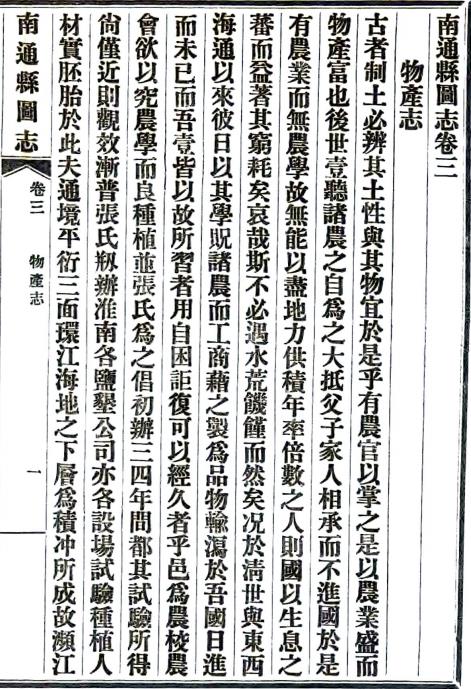 南通縣圖志卷三
物產志
古者制土必辨其土性與其物宜於是乎有農官以掌之是以農業盛而
物產富也後世壹聽諸農之自爲之大抵父子家人相承而不進國於是
有農業而無農學故無能以盡地力供積年率倍數之人則國以生息之
蕃而益著其窮耗矣哀哉斯不必遇水荒饑饉而然矣况於清世與東西
海通以來彼日以其學貺諸農而工商藉之製爲品物輸瀉於吾國日進
而未已而吾壹皆以故所習者用自困詎復可以經久者乎邑爲農校農
會欲以究農學而良種植並張氏爲之倡初辦三四年間都其試驗所得
尙僅近則觀效漸普張氏剏辦淮南各鹽墾公司亦各設場試驗種植人
材實胚胎於此夫通境平衍三面環江海地之下層爲積冲所成故瀕江
南通縣圖志
卷三
物產志
一